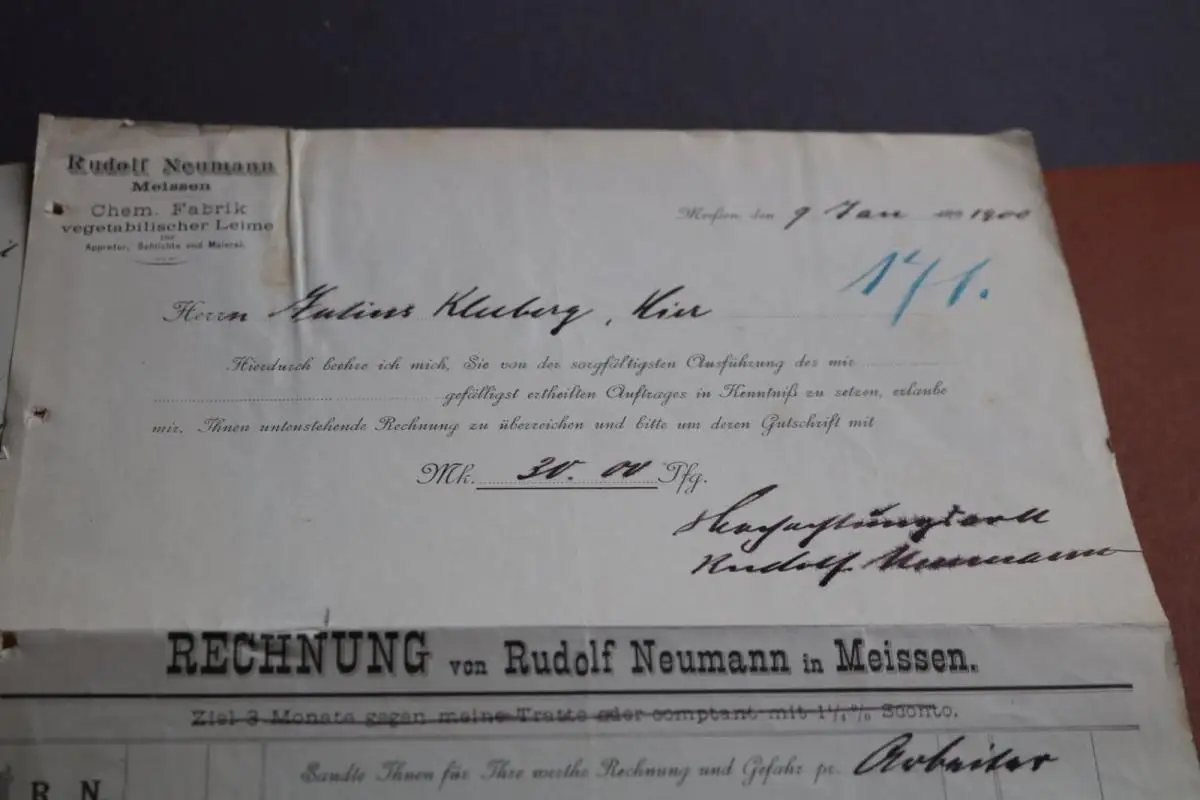 Rudolf Neumann
Meissen
Chem. Fabrik
vegetabilischer Leime
für
Appretur, Schlichte und Malerei.
Meißen, den 9 Jan 1900
171.
Herrn Julius Kleeberg, Hier
Hierdurch beehre ich mich, Sie von der sorgfältigsten Ausführung des mir
gefälligst ertheilten Auftrages in Kenntniß zu setzen, erlaube
mir, Ihnen untenstehende Rechnung zu überreichen und bitte um deren Gutschrift mit
Mk. 30. 00 Pfg.
Hochachtungsvoll
Rudolf Neumann
RECHNUNG von Rudolf Neumann in Meissen.
Ziel 3 Monate gegen meine Tratte oder comptant mit 1½% Sconto.
Sandte Ihnen für Ihre werthe Rechnung und Gefahr pr. Arbeiter
R. N.